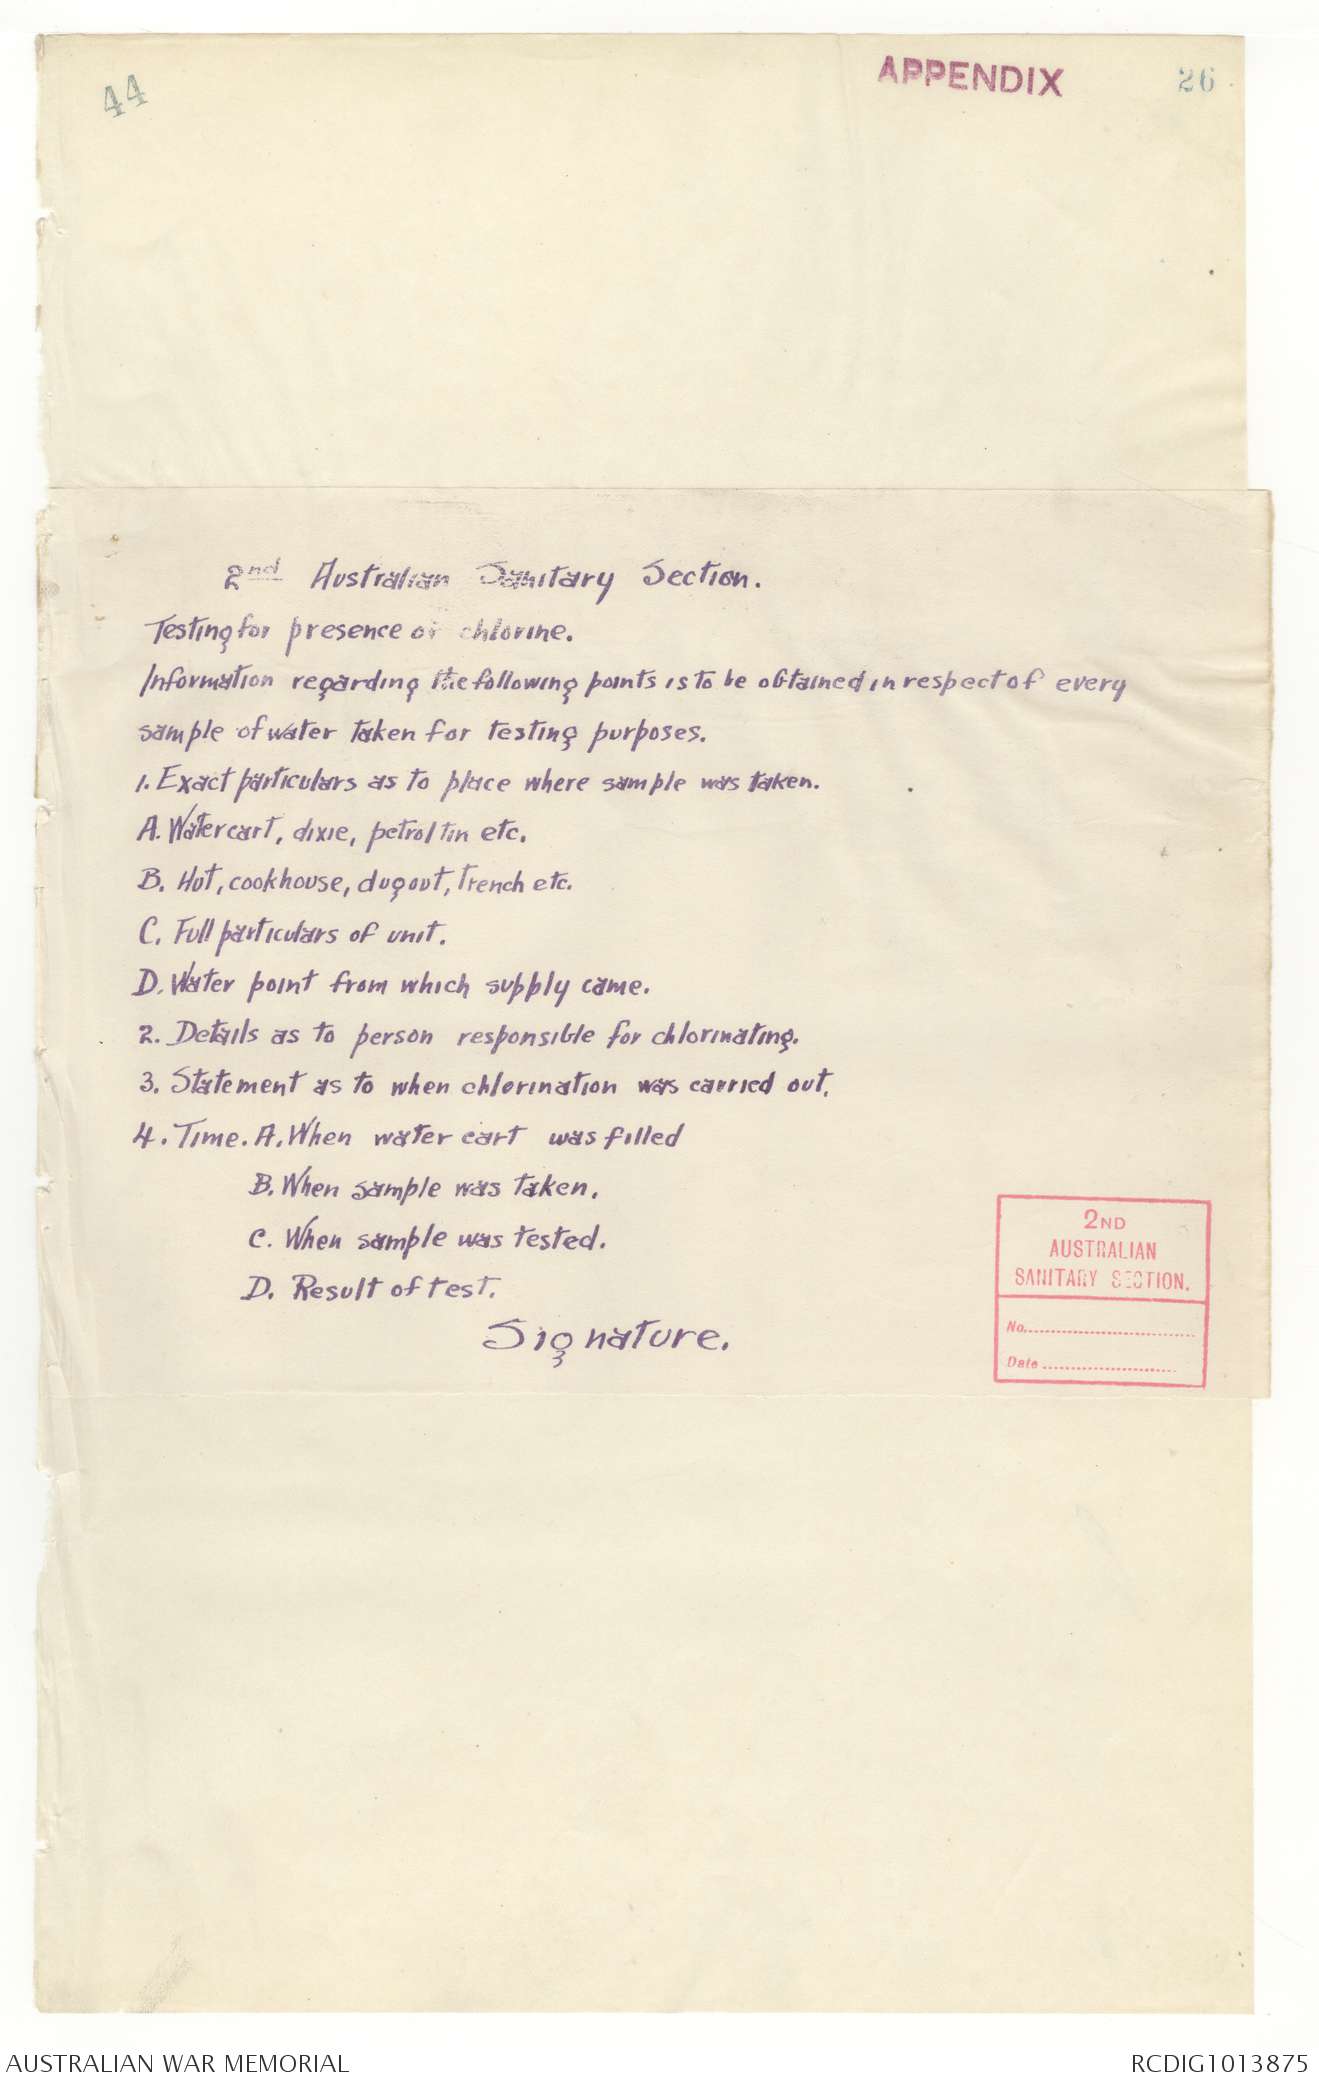 44
APPENDIX
26
2nd Australian Sanitary Section.
Testing for presence of chlorine.
Information regarding the following points is to be obtained in respect of every
sample of water taken for testing purposes.
1. Exact particulars as to place where sample was taken.
A. Watercart, dixie, petrol tin etc.
B. Hut, cookhouse, dugout, trench etc.
C. Full particulars of unit.
D. Water point from which supply came.
2. Details as to person responsible for chlorinating.
3. Statement as to when chlorination was carried out.
4. Time. A. When water cart was filled
B. When sample was taken.
C. When sample was tested.
D. Result of test.
Signature.
2ND
AUSTRALIAN
SANITARY SECTION.
No.
Date
AUSTRALIAN WAR MEMORIAL
RCDIG1013875